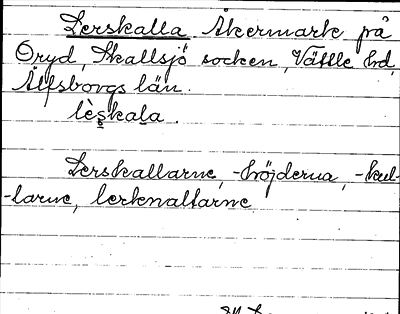 Lerskalla Åkermark på
Öryd, Skallsjö socken, Vättle hd,
Älfsborgs län.
lèskala.
Lerskallarne, -höjderna, -kul-
-larne, lerknallarne